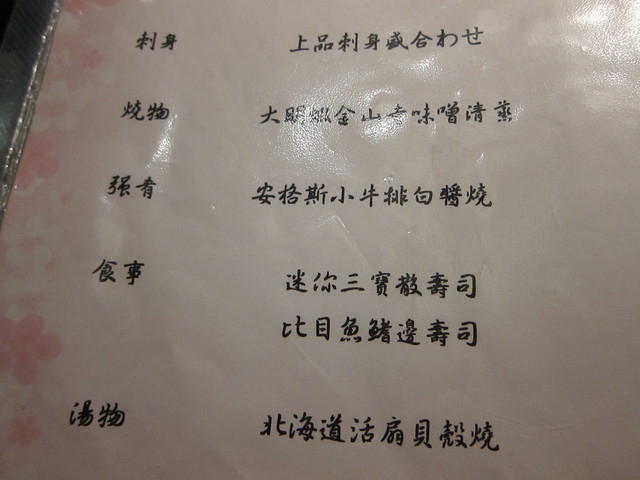 刺身 上品刺身盛合わせ
燒物 大明蝦金山寺味噌清蒸
强肴 安格斯小牛排白醬燒
食事 迷你三寶散壽司
比目魚鰭邊壽司
湯物 北海道活扇貝殼燒